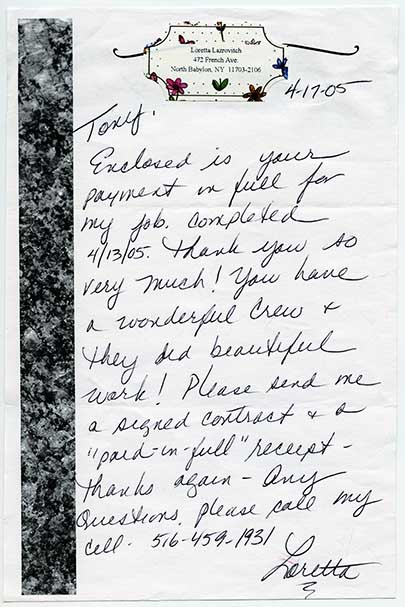 Loretta Lazrovitch
472 French Ave.
North Babylon, NY 11703-2106
4-17-05
Tony,
Enclosed is your
payment in full for
my job. completed
4/13/05. Thank you so
very much! You have
a wonderful crew &
they did beautiful
work! Please send me
a signed contract & a
"paid-in-full" receipt -
thanks again - Any
Questions, please call my
cell. 516-459-1931
Loretta